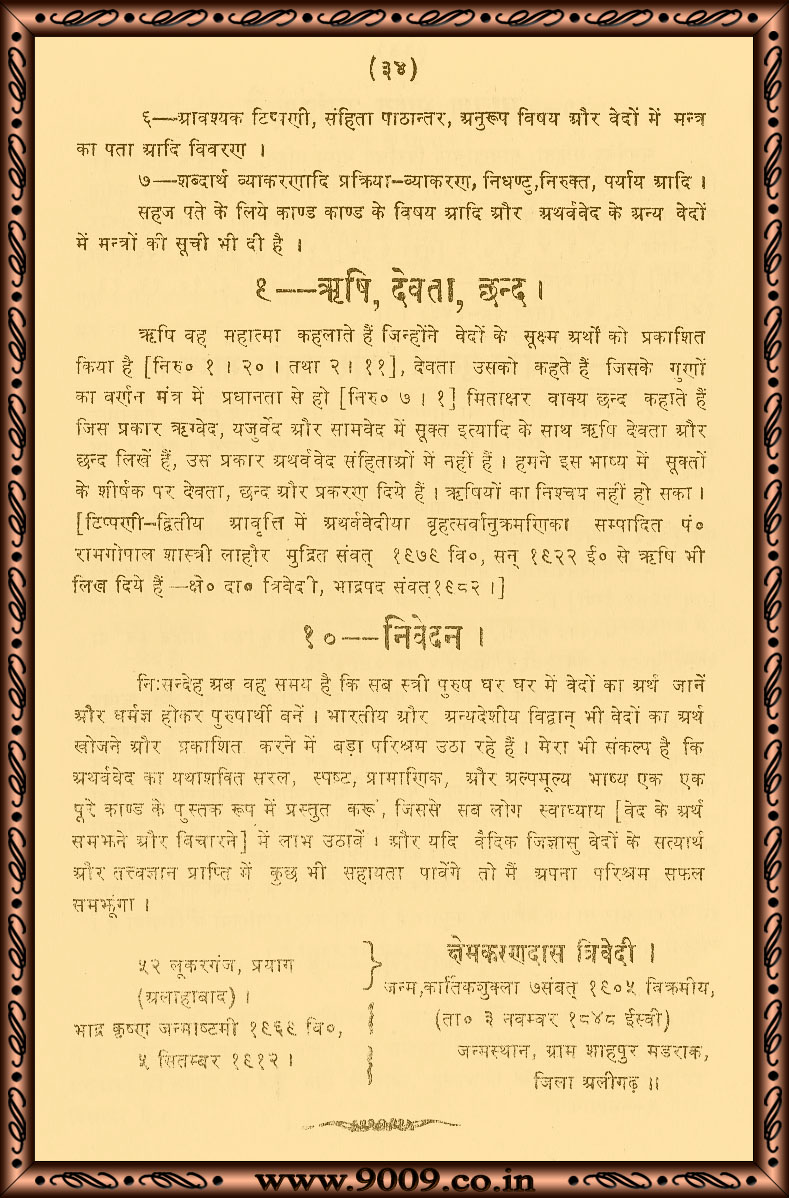 (३४)
६—आवश्यक टिप्पणी, संहिता पाठान्तर, अनुरूप विषय और वेदों में मन्त्र
का पता आदि विवरण ।
७—शब्दार्थ व्याकरणादि प्रक्रिया-व्याकरण, निघण्टु,निरुक्त, पर्याय आदि ।
सहज पते के लिये काण्ड काण्ड के विषय आदि और अथर्ववेद के अन्य वेदों
में मन्त्रों की सूची भी दी है ।
९—ऋषि, देवता, छन्द ।
ऋषि वह महात्मा कहलाते हैं जिन्होंने वेदों के सूक्ष्म अर्थों को प्रकाशित
किया है [निरु० १ । २० । तथा २ । ११], देवता उसको कहते हैं जिसके गुणों
का वर्णन मंत्र में प्रधानता से हो [निरु० ७ । १] मिताक्षर वाक्य छन्द कहाते हैं
जिस प्रकार ऋग्वेद, यजुर्वेद और सामवेद में सूक्त इत्यादि के साथ ऋषि देवता और
छन्द लिखें हैं, उस प्रकार अथर्ववेद संहिताओं में नहीं हैं । हमने इस भाष्य में सूक्तों
के शीर्षक पर देवता, छन्द और प्रकरण दिये हैं । ऋषियों का निश्चय नहीं हो सका ।
[टिप्पणी-द्वितीय आवृत्ति में अथर्ववेदीया बृहत्सर्वानुक्रमणिका सम्पादित पं०
रामगोपाल शास्त्री लाहौर मुद्रित संवत् १९७९ वि०, सन् १९२२ ई० से ऋषि भी
लिख दिये हैं —क्षे० दा० त्रिवेदी, भाद्रपद संवत्१९८२ ।]
१०—निवेदन ।
निःसन्देह अब वह समय है कि सब स्त्री पुरुष घर घर में वेदों का अर्थ जानें
और धर्मज्ञ होकर पुरुषार्थी बनें । भारतीय और अन्यदेशीय विद्वान् भी वेदों का अर्थ
खोजने और प्रकाशित करने में बड़ा परिश्रम उठा रहे हैं । मेरा भी संकल्प है कि
अथर्ववेद का यथाशक्ति सरल, स्पष्ट, प्रामाणिक, और अल्पमूल्य भाष्य एक एक
पूरे काण्ड के पुस्तक रूप में प्रस्तुत करूं, जिससे सब लोग स्वाध्याय [वेद के अर्थ
समझने और विचारने] में लाभ उठावें । और यदि वैदिक जिज्ञासु वेदों के सत्यार्थ
और तत्त्वज्ञान प्राप्ति में कुछ भी सहायता पावेंगे तो मैं अपना परिश्रम सफल
समझूंगा ।
५२ लूकरगंज, प्रयाग
(अलाहाबाद) ।
भाद्र कृष्ण जन्माष्टमी १९६९ वि०,
५ सितम्बर १९१२ ।
क्षेमकरणदास त्रिवेदी ।
जन्म,कार्तिकशुक्ला ७संबत् १९०५ विक्रमीय,
(ता० ३ नवम्बर १८४८ ईस्वी)
जन्मस्थान, ग्राम शाहपुर मडराक,
जिला अलीगढ़ ॥
www.9009.co.in